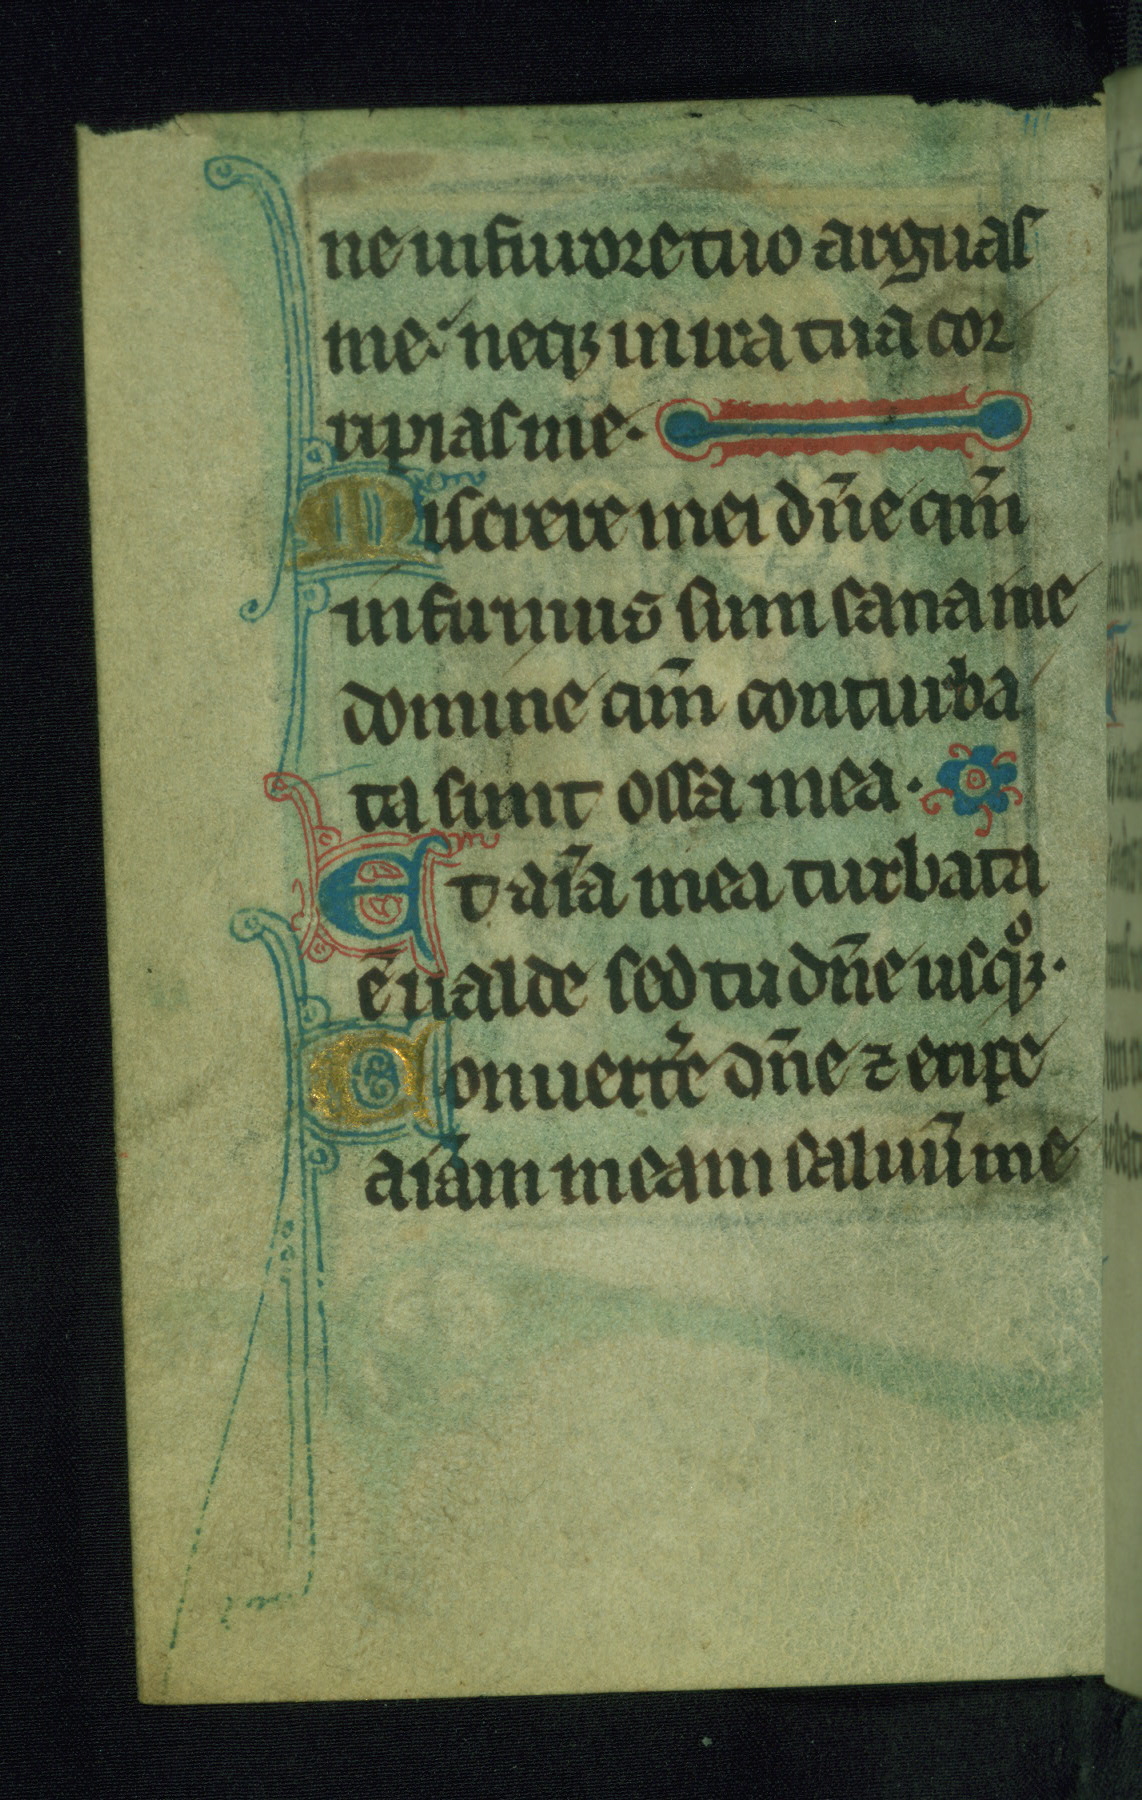 ne in furore tuo arguas
me· neqꝫ in ira tua cor
ripias me·
Miserere mei dn̄e qm̄
infirmus sum sana me
domine qm̄ conturba
ta sunt ossa mea·
Et aīa mea turbata
ē ualde sed tu dn̄e usqͦꝫ·
Conuert̄e dn̄e ⁊ eripe
aīam meam saluū me